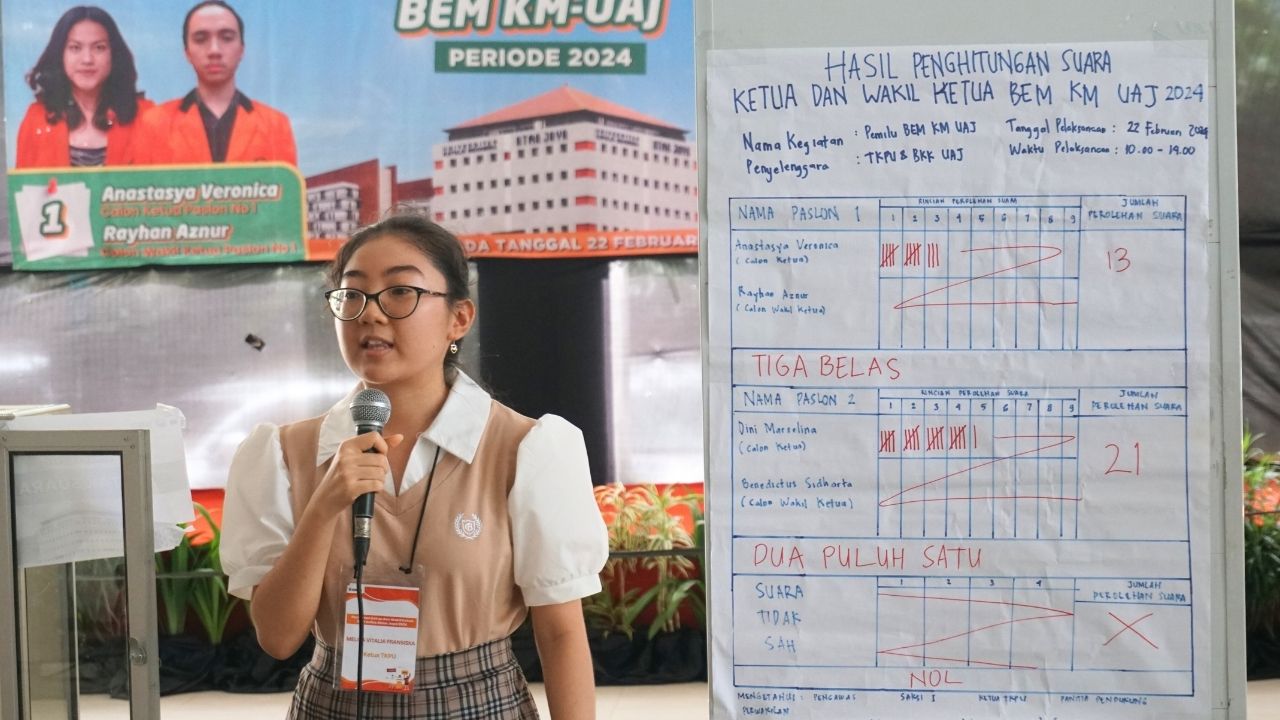 BEM KM-UAJ
PERIODE 2024
1
Anastasya Veronica
Calon Ketua Paslon No 1
Rayhan Aznur
Calon Wakil Ketua Paslon No 1
DA TANGGAL 22 FEBRUAR
MELIA VITALIA FRANSISKA
Ketua TKPU
HASIL PENGHITUNGAN SUARA
KETUA DAN WAKIL KETUA BEM KM UAJ 2024
Nama Kegiatan : Pemilu BEM KM UAJ
Penyelenggara : TKPU & BKK UAJ
Tanggal Pelaksanaan : 22 Februari 2024
Waktu Pelaksanaan : 10.00 - 19.00
NAMA PASLON 1
RINCIAN PEROLEHAN SUARA
1 2 3 4 5 6 7 8 9
JUMLAH
PEROLEHAN SUARA
Anastasya Veronica
(Calon Ketua)
13
Rayhan Aznur
(Calon Wakil Ketua)
TIGA BELAS
NAMA PASLON 2
RINCIAN PEROLEHAN SUARA
1 2 3 4 5 6 7 8 9
JUMLAH
PEROLEHAN SUARA
Dini Marselina
(Calon Ketua)
21
Benedictus Sidharta
(Calon Wakil Ketua)
DUA PULUH SATU
SUARA
TIDAK
SAH
1 2 3 4
JUMLAH
PEROLEHAN SUARA
X
NOL
MENGETAHUI : PENGAWAS SAKSI I KETUA TKPU PANITIA PENDUKUNG
PERWAKILAN